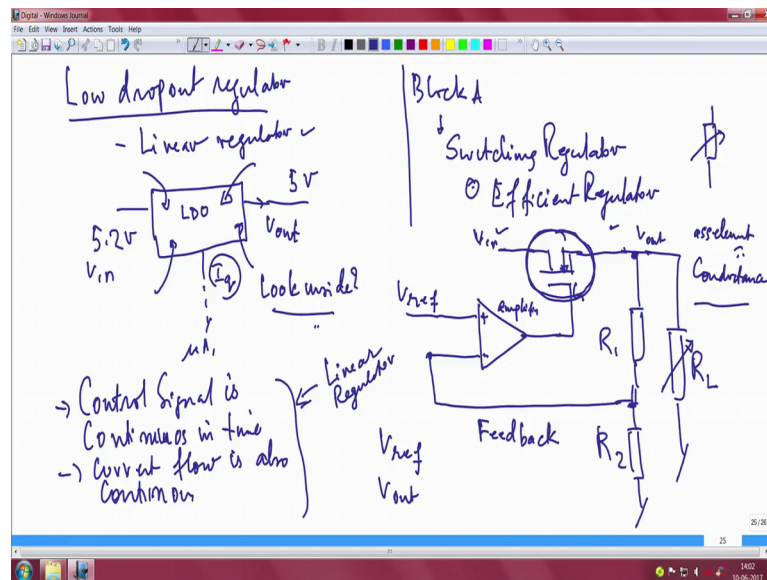 Digital - Windows Journal
File Edit View Insert Actions Tools Help
Low dropout regulator
- Linear regulator
LDO
5V
Vout
5.2V
Vin
Iq
Look inside?
μA,
-> Control Signal is
Continuos in time
-) Current flow is also
Continous
Linear
Regulator
Block A
Switching Regulator
Efficient Regulator
Vin
Vout
Conductance
Vref
Amplifier
+
-
R1
RL
Feedback
R2
Vref
Vout
25/26
25
14:02
10-06-2017